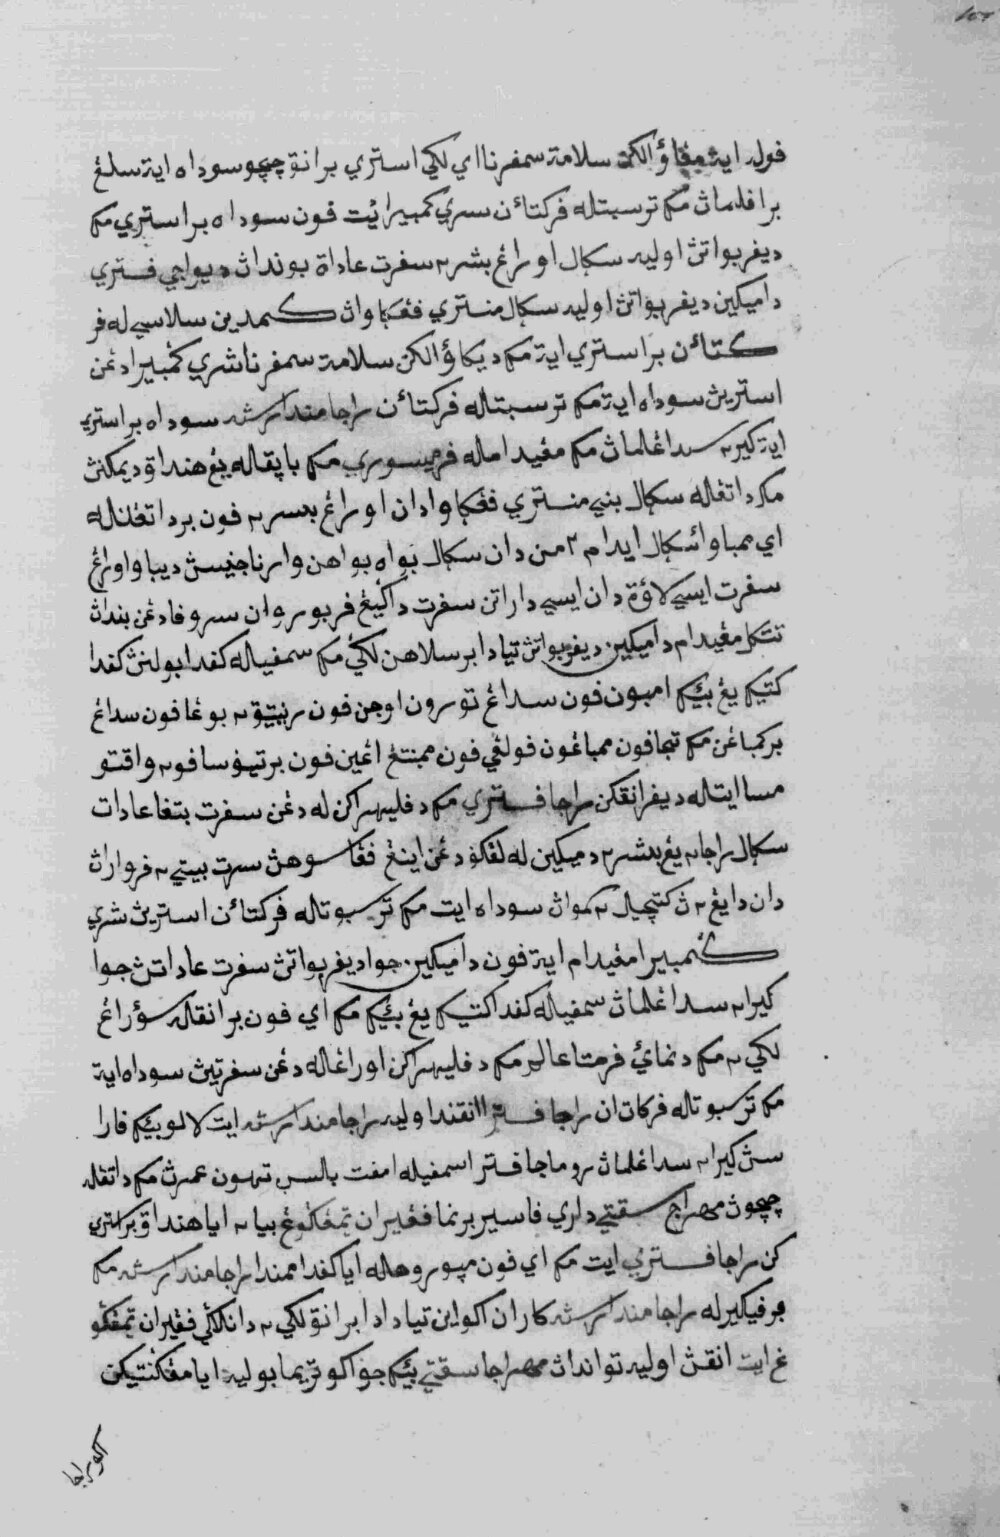 فولر ايت مڠاؤ الكن سلامة سمفرنا اي لكي استري برانق چوچو سوداه ايت سلڠ
براف لمات مك ترسبتله فركتائن سري كمبيرا ايت فون سوداه براستري مك
ديفربواتن اوليه سكال اورڠ بسر٢ سفرت عادة بوندان د يواجي فستري
دميكين ديفربواتن اوليه سكال منتري فڠكاوان كمدين سلاسيله فر
كتائن براستري ايت مك ديكاؤالكن سلامة سمفرنا شري كمبيرا دڠن
استرين سوداه ايت مك ترسبتاله فركتائن راجا منداكرسه سوداه براستري
ايت كير٢ سداڠلمات مك مڠيدامله فرميسوري مك باڽقاله يڠ هندق ديمكنن
مك داتڠله سكال بني منتري فڠكاوادان اورڠ بسر٢ فون برداتڠنله
اي ممباوا سكال ايدام٢من دان سكال بواه بواهن وارنا جنيسن ديباوا اورڠ
سفرت ايسي لاؤة دان ايسي داراتن سفرت داكيڠ فربوروان سروفاد دڠن بندان
تتكل مڠيدام دميكين ديفربواتن تيادا برسلاهن لكي مك سمفياله كفدا بولنن كفدا
كتيك يڠ بئيك امبون فون سداڠ تورون اوجن فون رنيتق٢ بوڠا فون سداڠ
بركمباڠن مك تجا فون ممباڠون فولڠي فون ممنتڠ اڠين فون برتيوف سافو٢ واقتو
مسا ايتله ديفرانقكن راجا فستري مك دفليهراكنله دڠن سفرت بتڠا عادات
سكال راجا٢ يڠ بسر٢ دميكينله لڠكف دڠن اينڠ فڠاسوهن سرت بيتي٢ فرواران
دان دايڠ٢ن كتچيل٢كموان سوداه ايت مك ترسبوتاله فركتائن استرين شري
كمبيرا مڠيدام ايت فون دميكين جوا ديفربواتن سفرت عاداتن جوا
كيرا٢ سداڠلمات سمفياله كفدا كتيك يڠ بئيك مك اي فون برانقاله سؤراڠ
لكي٢ مك دنمائي فرمتا عالم مك دفليهراكن اوراڠله دڠن سفرتين سوداه ايت
مك ترسبوتاله فركتائن راجا فستري انقندا وليه راجا منداكرسه ايت لالو بيك فارا
سن كيرا٢ سداڠلمات روماجا فترا سمفيله امفت بالس تاهون عمرن مك داتڠله
چوچون مهراج سقتي دلري فاسير برنما فڠيران تمڠكوڠ بيا٢ ايا هندق براستري
كن راجا فستري ايت مك اي فون مڽوروهله ايا كفدا ممندا راجا منداكرسه مك
برفيكيرله راجا منداكرسه كاران اكو اين تيادا دا برانق لكي٢ دان لاڬي فڠيران تمڠكو
ڠ ايت انقن اوليه توانداث مهراجا سقتي بئيك جوا اكو تريما بوليه ايا مڠكنتيكن
اكو راجا